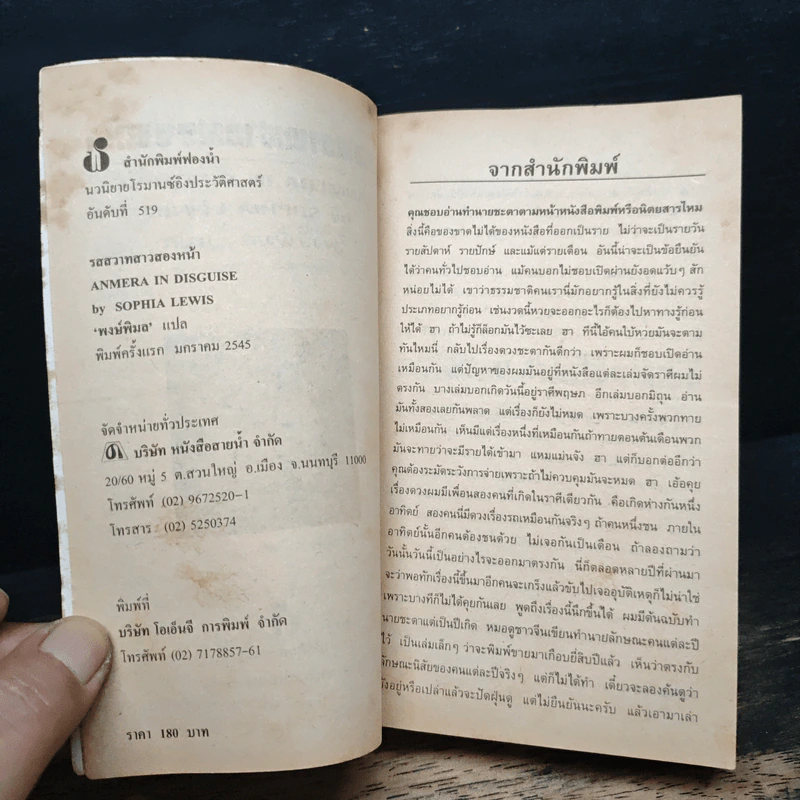 สำนักพิมพ์ฟองน้ำ
นวนิยายโรมานซ์อิงประวัติศาสตร์
อันดับที่ 519
รสสวาทสาวสองหน้า
ANMERA IN DISGUISE
by SOPHIA LEWIS
'พงษ์พิมล' แปล
พิมพ์ครั้งแรก มกราคม 2545
จัดจำหน่ายทั่วประเทศ
บริษัท หนังสือสายน้ำ จำกัด
20/60 หมู่ 5 ต.สวนใหญ่ อ.เมือง จ.นนทบุรี 11000
โทรศัพท์ (02) 9672520-1
โทรสาร (02) 5250374
พิมพ์ที่
บริษัท โอเอ็นจี การพิมพ์ จำกัด
โทรศัพท์ (02) 7178857-61
ราคา 180 บาท
จากสำนักพิมพ์
คุณชอบอ่านทำนายชะตาตามหน้าหนังสือพิมพ์หรือนิตยสารไหม
สิ่งนี้คือของขาดไม่ได้ของหนังสือที่ออกเป็นราย ไม่ว่าจะเป็นรายวัน
รายสัปดาห์ รายปักษ์ และแม้แต่รายเดือน อันนี้น่าจะเป็นข้อยืนยัน
ได้ว่าคนทั่วไปชอบอ่าน แม้คนบอกไม่ชอบเปิดผ่านยังอดแว้บๆ สัก
หน่อยไม่ได้ เขาว่าธรรมชาติคนเรานี่มักอยากรู้ในสิ่งที่ยังไม่ควรรู้
ประเภทอยากรู้ก่อน เช่นงวดนี้หวยจะออกอะไรก็ต้องไปหาทางรู้ก่อน
ให้ได้ ฮา ถ้าไม่รู้ก็ล็อกมันไว้ซะเลย ฮา ทีนี้ไอ้คนใบ้หวยมันจะตาม
ทันไหมนี่ กลับไปเรื่องดวงชะตากันดีกว่า เพราะผมก็ชอบเปิดอ่าน
เหมือนกัน แต่ปัญหาของผมมันอยู่ที่หนังสือแต่ละเล่มจัดราศีผมไม่
ตรงกัน บางเล่มบอกเกิดวันนี้อยู่ราศีพฤษภ อีกเล่มบอกมิถุน อ่าน
มันทั้งสองเลยกันพลาด แต่เรื่องก็ยังไม่หมด เพราะบางครั้งพวกทาย
ไม่เหมือนกัน เห็นมีแต่เรื่องหนึ่งที่เหมือนกันถ้าทายตอนต้นเดือนพวก
มันจะทายว่าจะมีรายได้เข้ามา แหมแม่นจัง ฮา แต่ก็บอกต่ออีกว่า
คุณต้องระมัดระวังการจ่ายเพราะถ้าไม่ควบคุมมันจะหมด ฮา เอ้อคุย
เรื่องดวงผมมีเพื่อนสองคนที่เกิดในราศีเดียวกัน คือเกิดห่างกันหนึ่ง
อาทิตย์ สองคนนี่มีดวงเรื่องรถเหมือนกันจริงๆ ถ้าคนหนึ่งชน ภายใน
อาทิตย์นั้นอีกคนต้องชนด้วย ไม่เจอกันเป็นเดือน ถ้าลองถามว่า
วันนั้นวันนี้เป็นอย่างไรจะออกมาตรงกัน นี่ก็ตลอดหลายปีที่ผ่านมา
จะว่าพอทักเรื่องนี้ขึ้นมาอีกคนจะเกร็งแล้วขับไปเจออุบัติเหตุก็ไม่น่าใช่
เพราะบางทีก็ไม่ได้คุยกันเลย พูดถึงเรื่องนี้นึกขึ้นได้ ผมมีต้นฉบับทำ
นายชะตาแต่ปีเกิด หมอดูชาวจีนเขียนทำนายลักษณะคนแต่ละปี
ไว้ เป็นเล่มเล็กๆ ว่าจะพิมพ์ขายมาเกือบยี่สิบปีแล้ว เห็นว่าตรงกับ
ลักษณะนิสัยของคนแต่ละปีจริงๆ แต่ก็ไม่ได้ทำ เดี๋ยวจะลองค้นดูว่า
ยังอยู่หรือเปล่าแล้วจะปัดฝุ่นดู แต่ไม่ยืนยันนะครับ แล้วเอามาเล่า